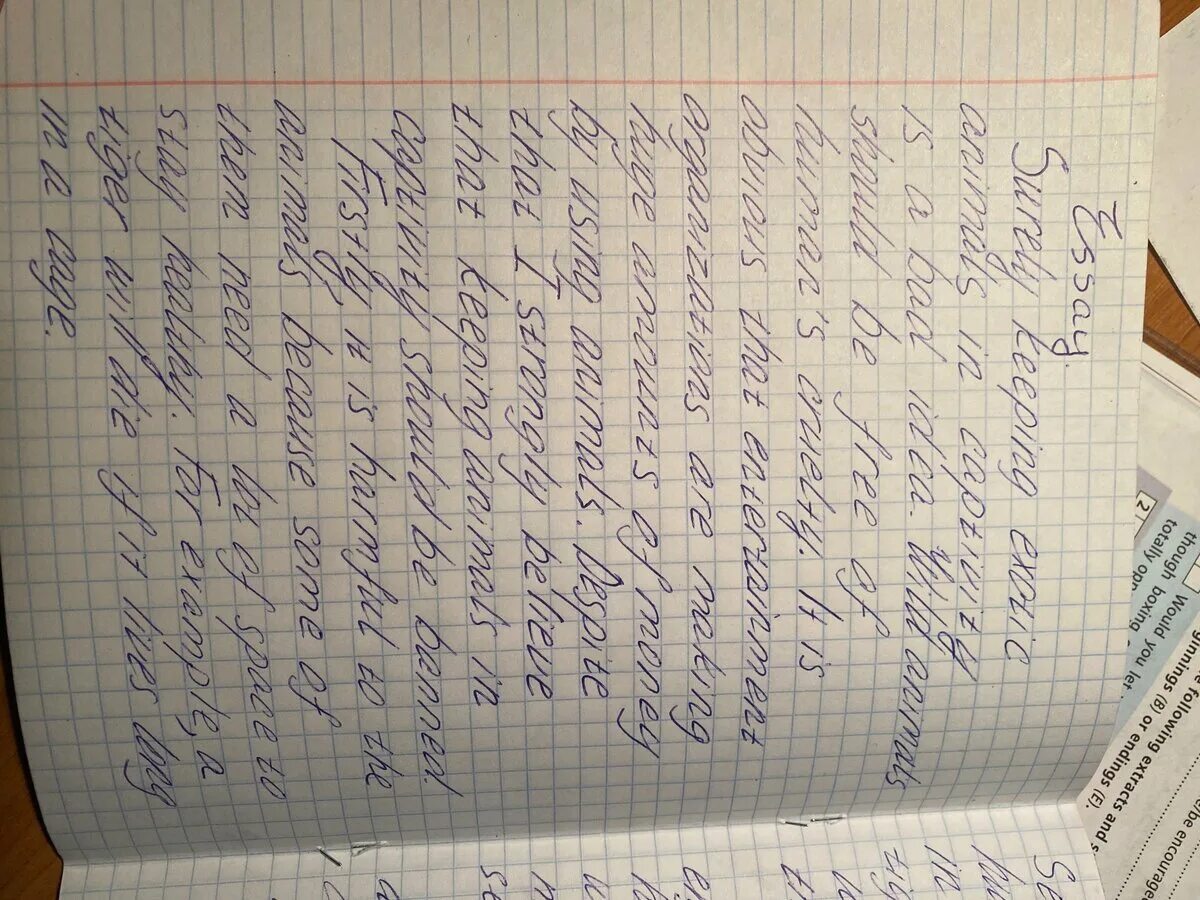 Essay.
Surely keeping exotic
animals in captivity
is a bad idea. Wild animals
should be free of
human's cruelty. It is
obvious that entertainment
organizations are making
huge amounts of money
by using animals. Despite
that I strongly believe
that keeping animals in
captivity should be banned.
Firstly, it is harmful to the
animals because some of
them need a lot of space to
stay healthy. For example, a
tiger will die if it lives long
in a cage.
2
though boxing
totally
Would you let
following extracts and
(B) or endings (E).
be encouraged